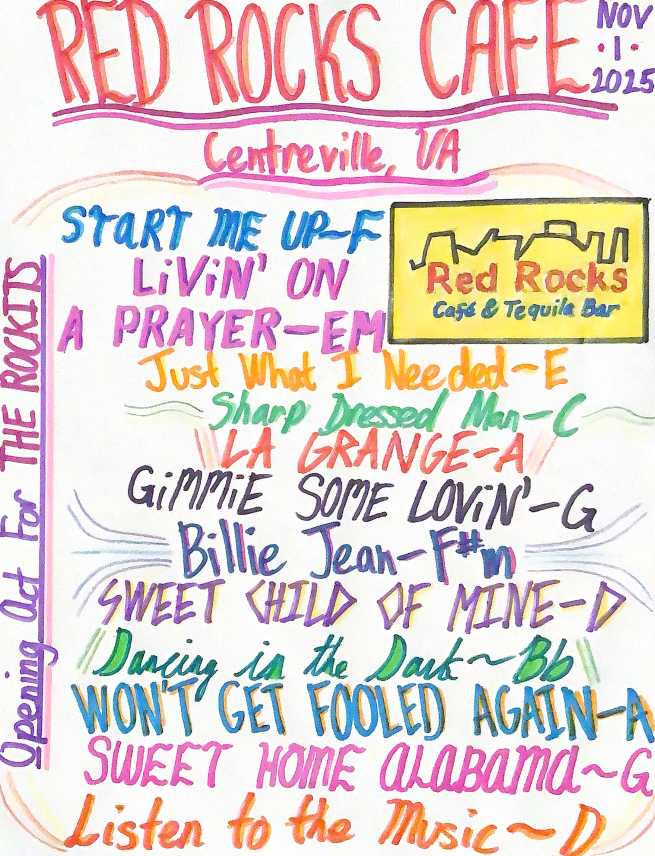 RED ROCKS CAFE
NOV
·1·
2025
Centreville, VA
START ME UP~F
LiViN' ON
A PRAYER—EM
Red Rocks
Café & Tequila Bar
Just What I Needed~E
Sharp Dressed Man—C
LA GRANGE-A
GiMMiE SOME LOViN'-G
Billie Jean—F#m
SWEET CHILD OF MINE—D
Dancing in the Dark~Bb
WON'T GET FOOLED AGAIN—A
SWEET HOME ALABAMA~G
Listen to the Music~D
Opening Act For THE ROCKITS